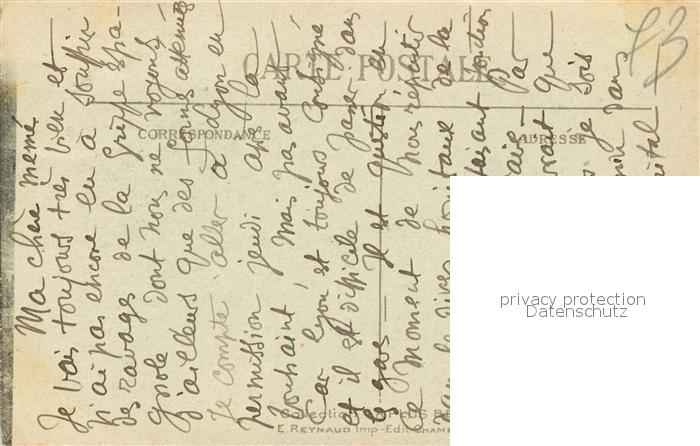 CARTE POSTALE
CORRESPONDANCE
ADRESSE
73
Ma chère mémé
Je vais toujours très bien et
n'ai pas encore eu à souffrir
des ravages de la Grippe Espa-
gnole dont nous ne voyons
d'ailleurs que des atténués
Je compte aller à Lyon en
permission jeudi après la
Toussaint, mais pas avant
Car Lyon est toujours consigné
et il est difficile de passer dans
les gares — Il est question en
ce moment de nous répartir
dans les divers hôpitaux de la
faisant fonction
Par
que
je sois
dans
Collection
E. REYNAUD Imp-Edit CHAM
privacy protection
Datenschutz